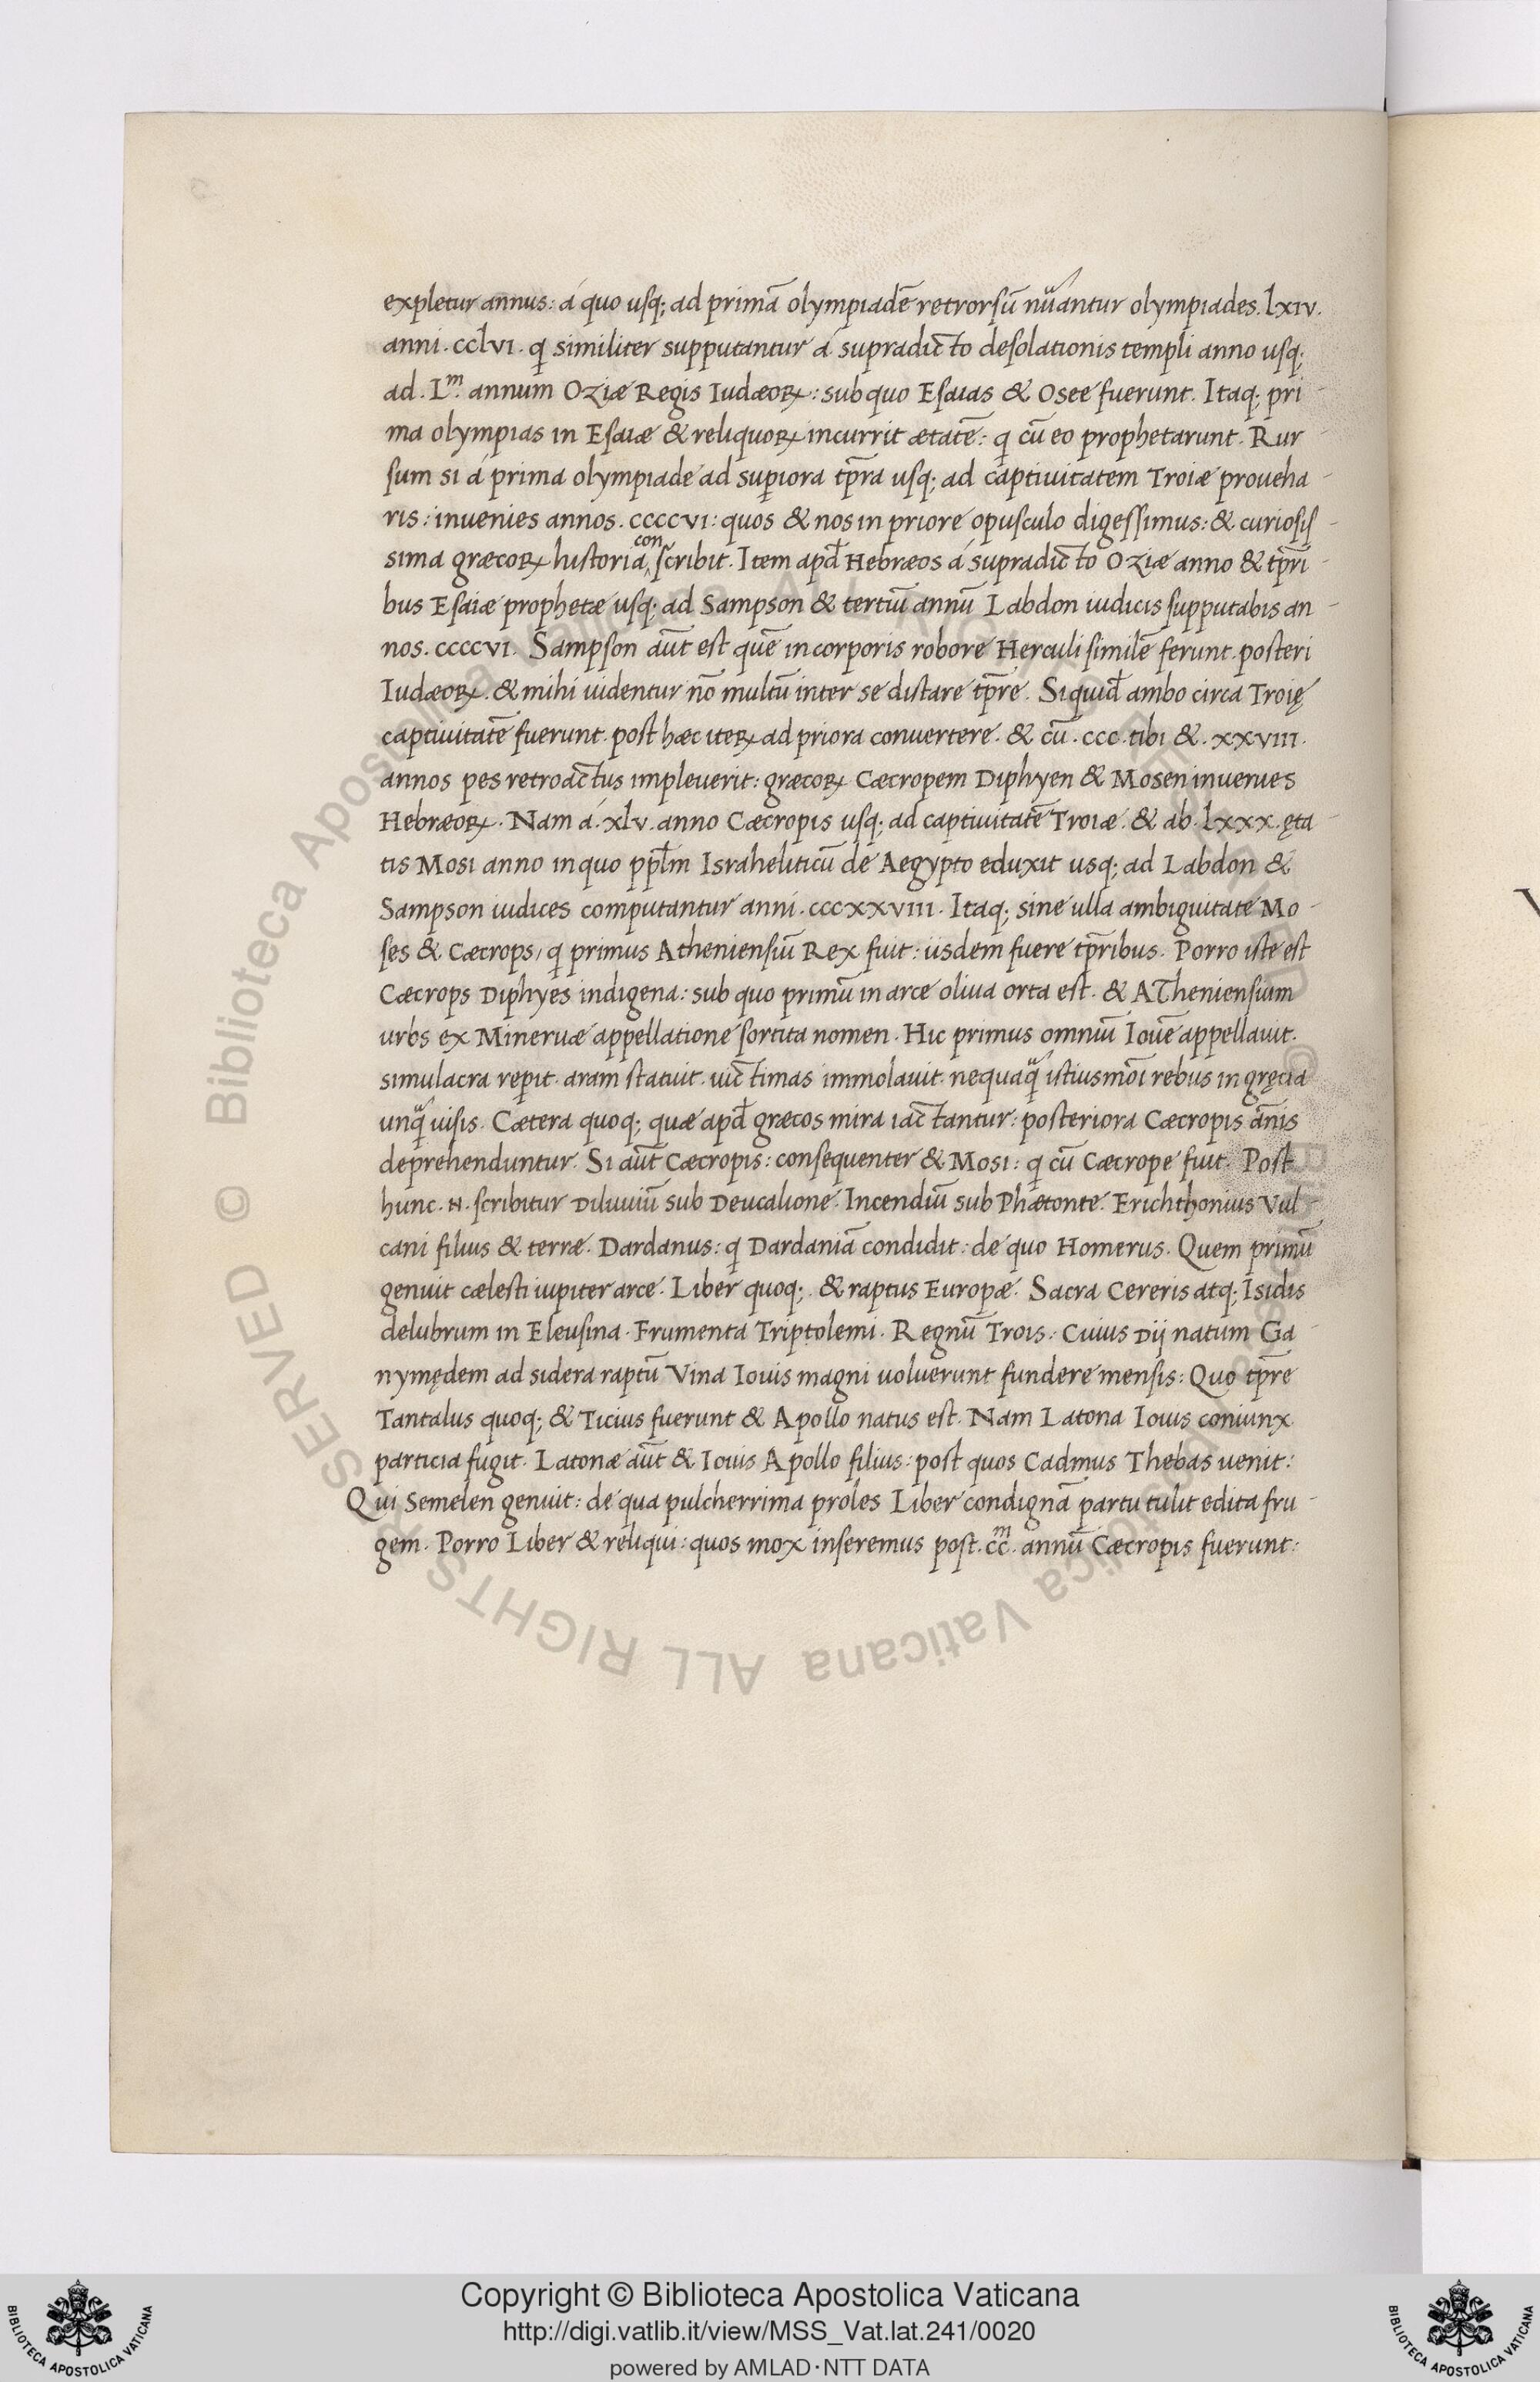 expletur annus: á quo usq; ad primā olympiadē retrorsū nūantur olympiades. lxiv.
anni. cclvi. q̨ similiter supputantur á supradicto desolationis templi anno usq;
ad. L.ᵐ annum Oziæ Regis Iudæoꝝ: sub quo Esaias & Osee fuerunt. Itaq; pri
ma olympias in Esaiæ & reliquoꝝ incurrit ætatē: q̨ cū eo prophetarunt. Rur
sum si á prima olympiade ad supiora tp̄ra usq; ad captiuitatem Troiæ proueha
ris: inuenies annos. ccccvi: quos & nos in priore opusculo digessimus: & curiosis
sima græcoꝝ historia conscribit. Item apđ Hebræos á supradicto Oziæ anno & tp̄ri
bus Esaiæ prophetæ usq; ad Sampson & tertiū annū Labdon iudicis supputabis an
nos. ccccvi. Sampson aūt est quē in corporis robore Herculi similē ferunt posteri
Iudæoꝝ. & mihi uidentur nō multū inter se distare tp̄re. Siquiđ ambo circa Troię
captiuitatē fuerunt. post hæc iteꝝ ad priora conuertere. & cū. ccc. tibi &. xxviii.
annos pes retroactus impleuerit: græcoꝝ Cæcropem Diphyen & Mosen inuenies
Hebræoꝝ. Nam á. xlv. anno Cæcropis usq; ad captiuitatē Troiæ. & ab. lxxx. ęta
tis Mosi anno in quo pp̄lm Israheliticū de Aegypto eduxit usq; ad Labdon &
Sampson iudices computantur anni. cccxxviii. Itaq; sine ulla ambiguitate Mo
ses & Cæcrops, q̨ primus Atheniensiū Rex fuit: iisdem fuere tp̄ribus. Porro iste est
Cæcrops Diphyes indigena: sub quo primū in arce oliua orta est. & ATheniensium
urbs ex Mineruæ appellatione sortita nomen. Hic primus omniū Iouē appellauit.
simulacra repit. aram statuit. uictimas immolauit. nequaq̃ istiusmōi rebus in gręcia
unq̃ uisis. Cætera quoq; quæ apđ græcos mira iactantur: posteriora Cæcropis ānis
deprehenduntur. Si aūt Cæcropis: consequenter & Mosi: q̨ cū Cæcrope fuit. Post
hunc. N. scribitur Diluuiū sub Deucalione. Incendiū sub Phætonte. Erichthonius Vul
cani filius & terræ. Dardanus: q̨ Dardaniā condidit: de quo Homerus. Quem primū
genuit cælesti iupiter arce. Liber quoq;. & raptus Europæ. Sacra Cereris atq; Isidis
delubrum in Eleusina. Frumenta Triptolemi. Regnū Trois: Cuius Dij natum Ga
nymędem ad sidera raptū Vina Iouis magni uoluerunt fundere mensis: Quo tp̄re
Tantalus quoq; & Ticius fuerunt & Apollo natus est. Nam Latona Iouis coniunx
particia fugit. Latonæ aūt & Iouis Apollo filius: post quos Cadmus Thebas uenit:
Qui Semelen genuit: de qua pulcherrima proles Liber condignā partu tulit edita fru
gem. Porro Liber & reliqui: quos mox inseremus post. cc.ᵐ annū Cæcropis fuerunt:
© Biblioteca Apostolica Vaticana ALL RIGHTS RESERVED
Copyright © Biblioteca Apostolica Vaticana
http://digi.vatlib.it/view/MSS_Vat.lat.241/0020
powered by AMLAD·NTT DATA
BIBLIOTECA APOSTOLICA VATICANA
BIBLIOTECA APOSTOLICA VATICANA